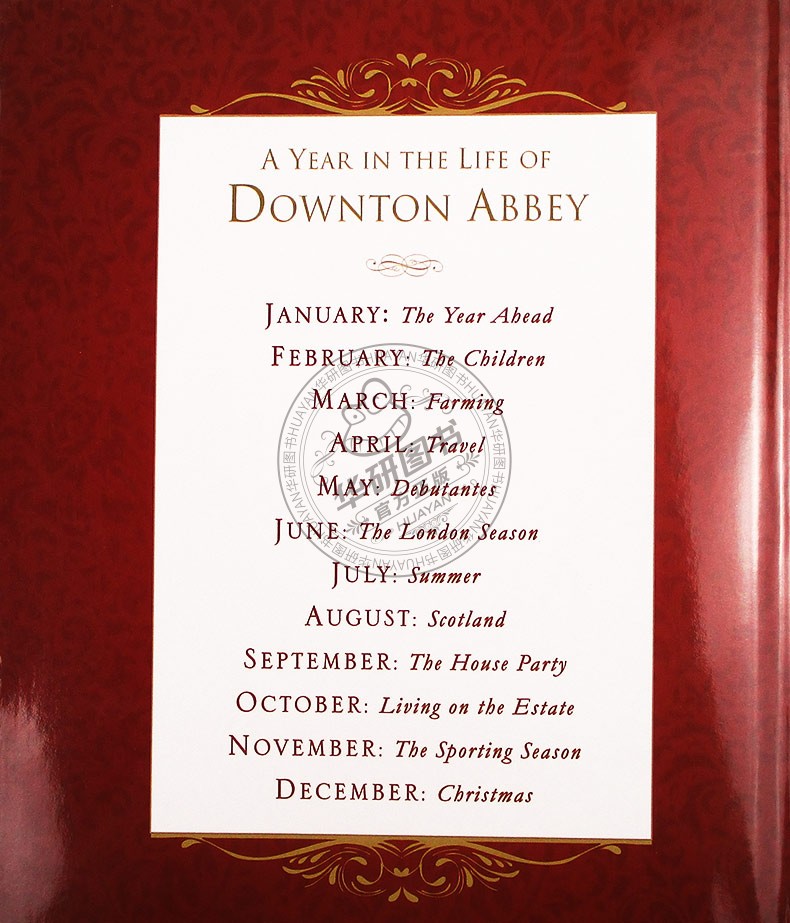 A YEAR IN THE LIFE OF
DOWNTON ABBEY
JANUARY: The Year Ahead
FEBRUARY: The Children
MARCH: Farming
APRIL: Travel
MAY: Debutantes
JUNE: The London Season
JULY: Summer
AUGUST: Scotland
SEPTEMBER: The House Party
OCTOBER: Living on the Estate
NOVEMBER: The Sporting Season
DECEMBER: Christmas
华研图书
官方正版
HUAYAN
HUAYAN华研图书HUAYAN华研图书HUAYAN华研图书HUAYAN华研图书